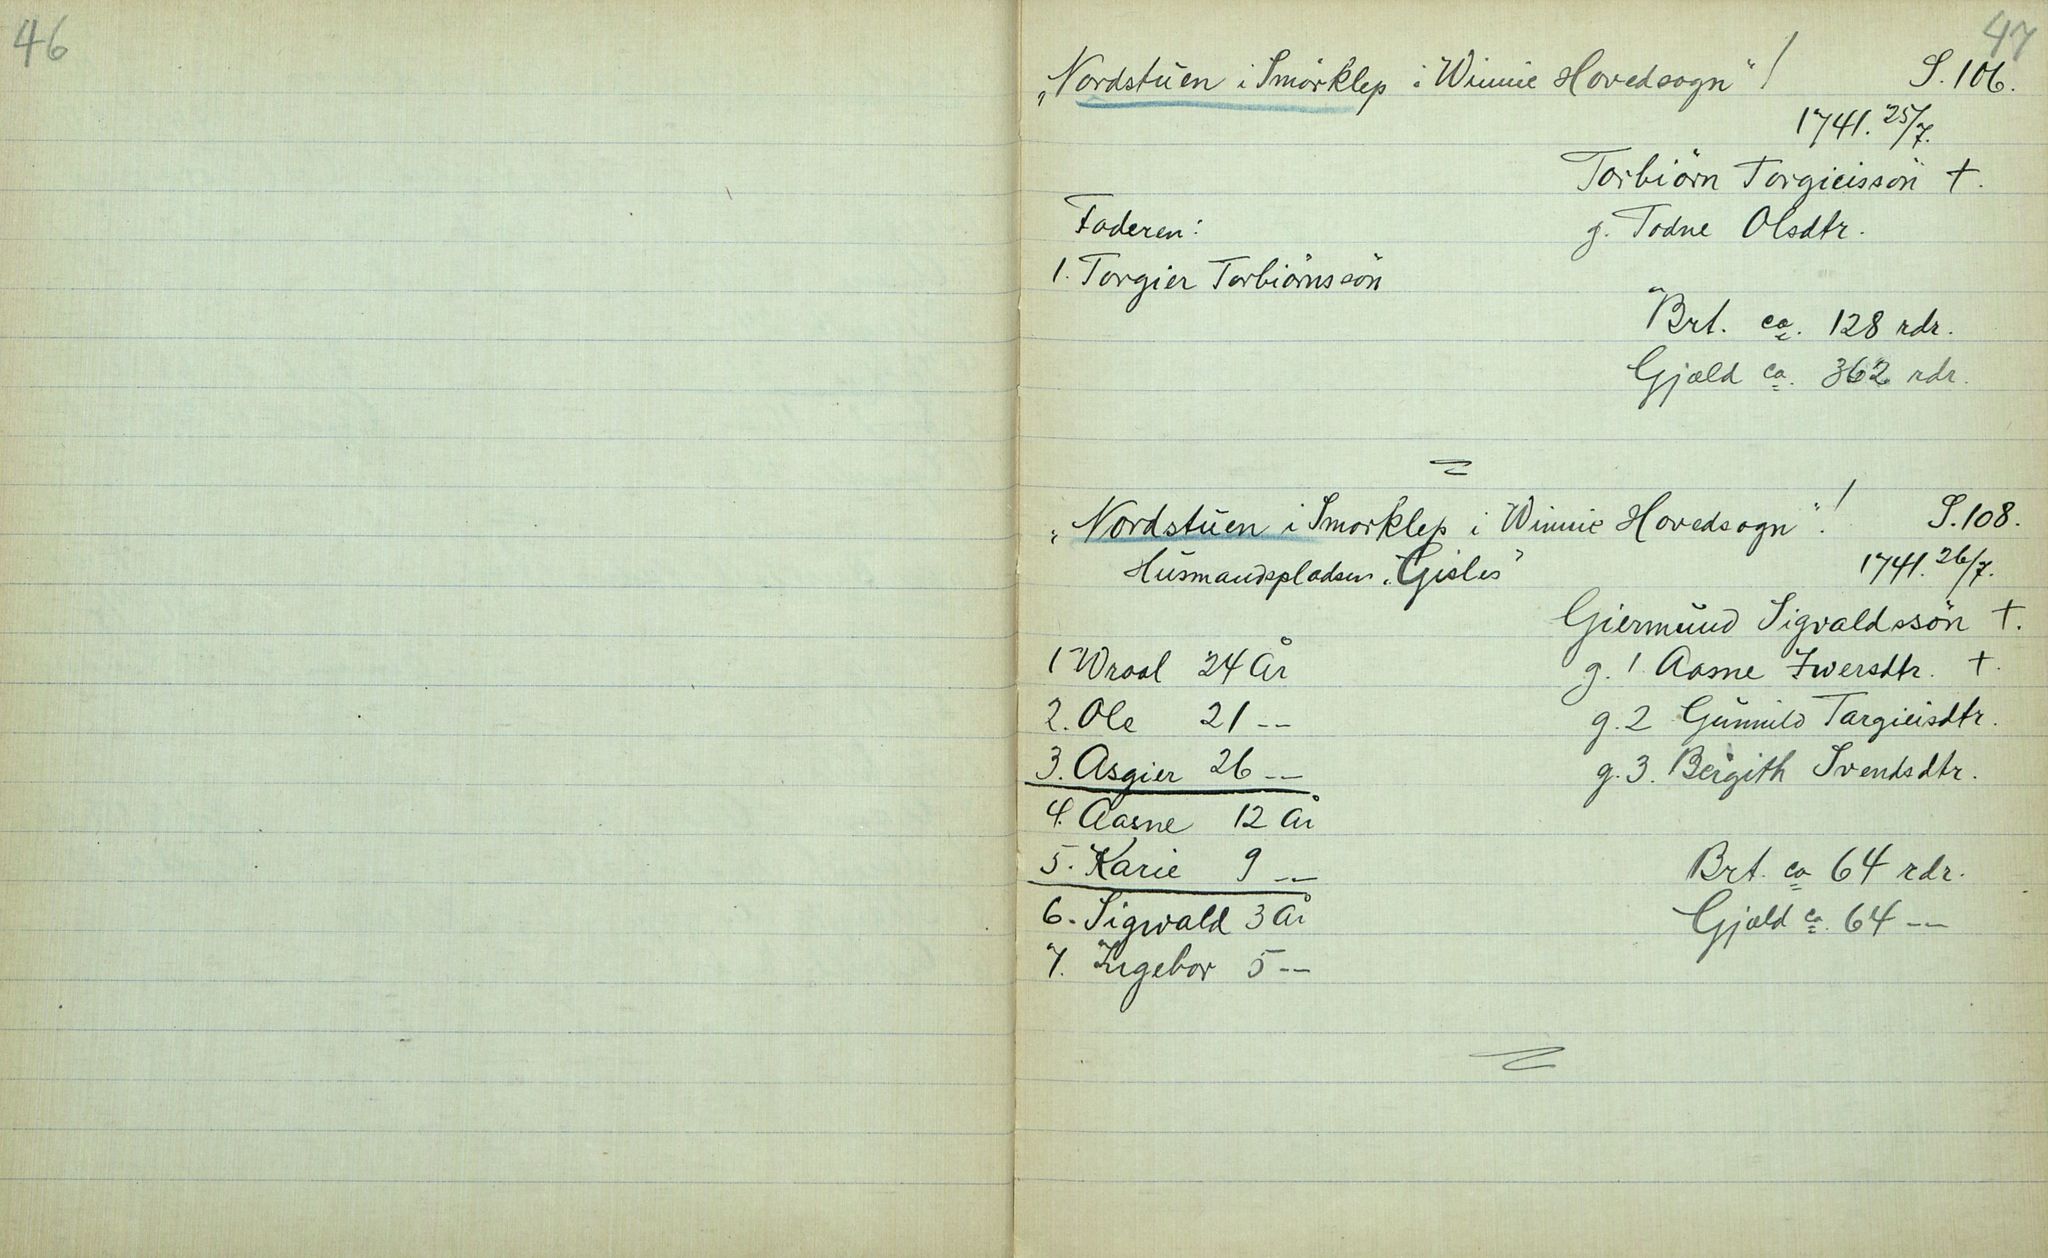 46
47
„Nordstuen i Smörklep i Winnie Hovedsogn“! S. 106.
1741. 25/7.
Torbiörn Torgieissön †.
Faderen: g. Todne Olsdtr.
1. Torgier Torbiörnssön
Brt. ca. 128 rdr.
Gjæld ca. 362 rdr.
„Nordstuen i Smorklep i Winnie Hovedsogn“! S. 108.
Husmandspladsen „Gisles“ 1741. 26/7.
Giermund Sigvaldssön †.
1 Wraal 24 År g. 1 Aasne Iwersdtr. †.
2. Ole 21 -- g. 2 Gunnild Targieisdtr.
3. Asgier 26 -- g. 3. Bergith Svendsdtr.
4. Aasne 12 År
5. Karie 9 -- Brt. ca 64 rdr.
6. Sigwald 3 År Gjæld ca. 64 --
7. Ingebor 5 --